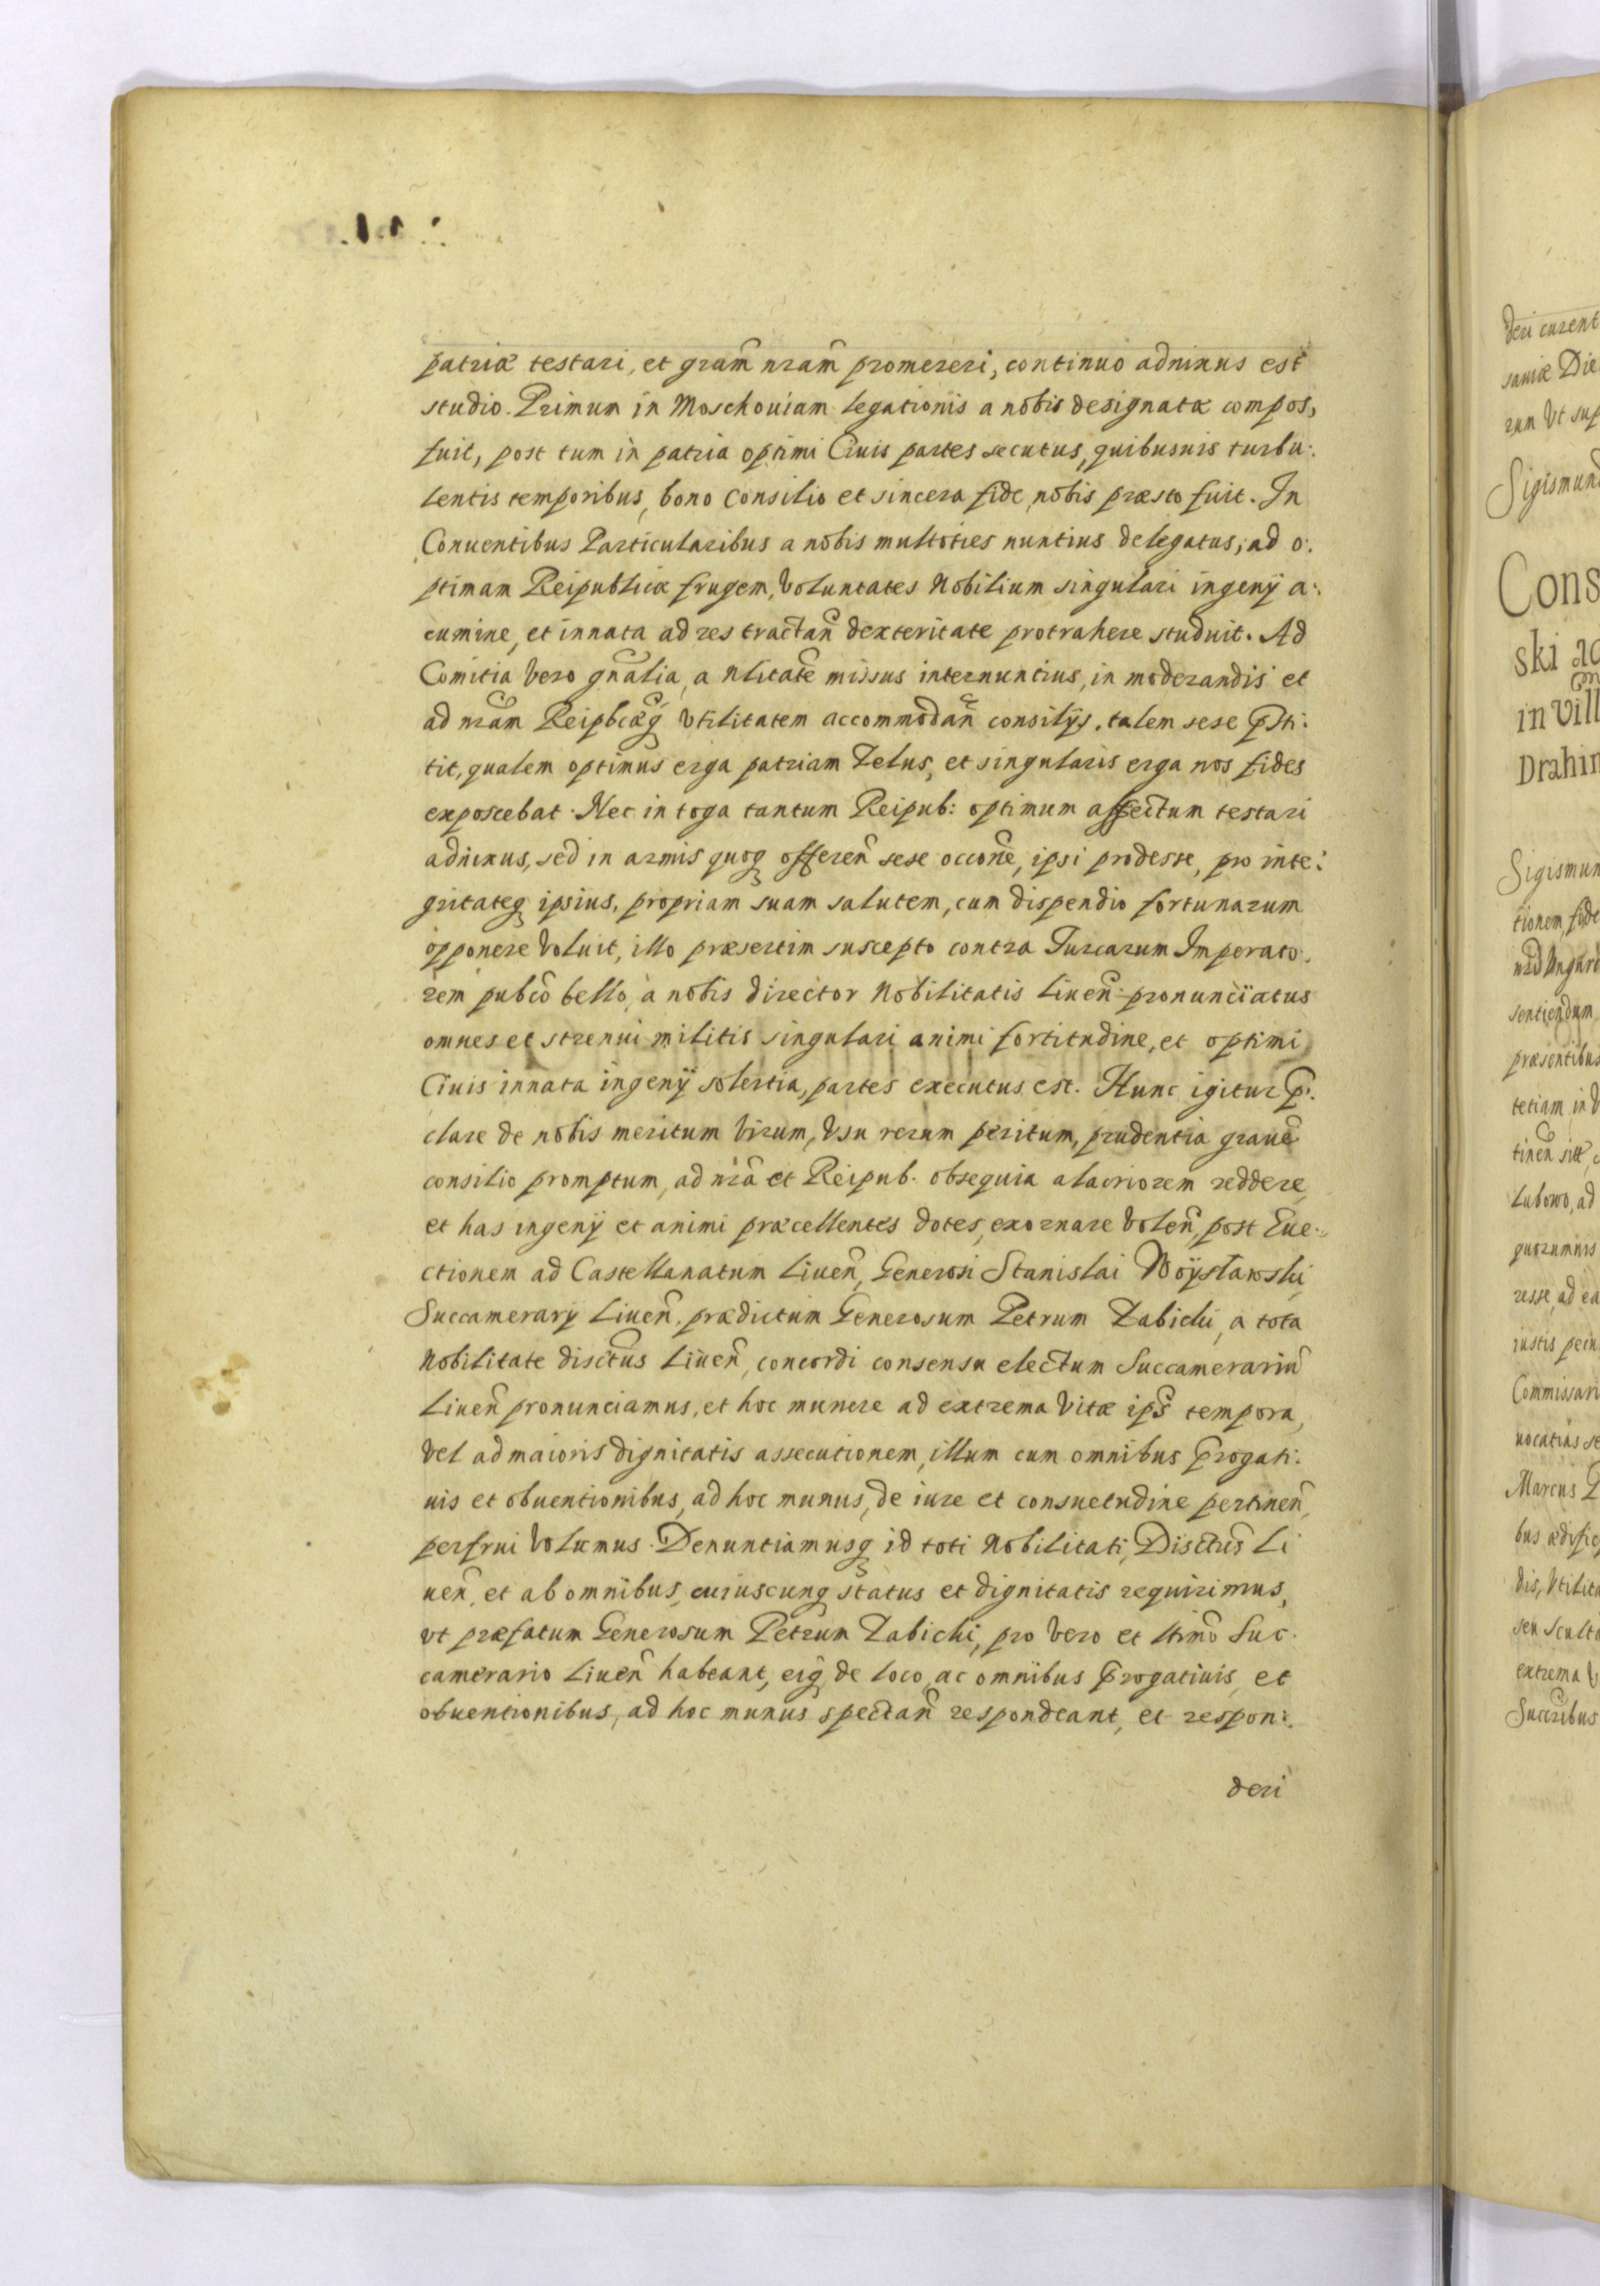 patriæ testari, et gram̃ nram̃ promereri, continuo adnixus est
studio. Primum in Moschouiam legationis a nobis designatæ compos,
fuit, post tum in patria optimi Ciuis partes secutus, quibusuis turbu:
lentis temporibus, bono Consilio et sincera fide, nobis præsto fuit. In
Conuentibus Particularibus a nobis multoties nuntius delegatus, ad o:
ptimam Reipublicæ frugem, Voluntates Nobilium singulari ingenÿ a:
cumine, et innata ad res tractan̄ dexteritate protrahere studuit. Ad
Comitia Vero gñalia, a Nlitatẽ missus internuntius, in moderandis et
ad nram̃ Reipbcæq̃ Vtilitatem accommodañ consilÿs, talem sese p̃sti:
tit, qualem optimus erga patriam Zelus, et singularis erga nos fides
exposcebat. Nec in toga tantum Reipub: optimum affectum testari
adnixus, sed in armis quoq offereñ sese occone, ipsi prodesse, pro inte:
gritateq ipsius, propriam suam salutem, cum dispendio fortunarum
opponere Voluit, illo præsertim suscepto contra Turcarum Imperato:
rem pubcõ bello, a nobis director Nobilitatis Liueñ pronunciatus
omnes et strenui militis singulari animi fortitudine, et optimi
Ciuis innata ingenÿ solertia, partes executus est. Hunc igitur p̃:
clare de nobis meritum Virum, Vsu rerum peritum, prudentia grauẽ
consilio promptum, ad nrã et Reipub. obsequia alacriorem reddere,
et has ingenÿ et animi præcellentes dotes, exornare Voleñ, post Eue:
ctionem ad Castellanatum Liueñ, Generosi Stanislai Woÿsławski,
Succamerarÿ Liueñ, prædictum Generosum Petrum Zabicki, a tota
Nobilitate disctũs Liueñ, concordi consensu electum Succamerariũ
Liueñ pronunciamus, et hoc munere ad extrema Vitæ ips̃ tempora,
Vel ad maioris dignitatis assecutionem, illum cum omnibus p̃rogati:
uis et obuentionibus, ad hoc munus, de iure et consuetudine pertineñ,
perfrui Volumus. Denuntiamusq id toti Nobilitati, Disctũs Li
ueñ, et ab omnibus, cuiuscunq status et dignitatis requirimus,
vt præfatum Generosum Petrum Zabicki, pro Vero et ltimõ Suc:
camerario Liueñ habeant, eiq de loco, ac omnibus p̃rogatiuis, et
obuentionibus, ad hoc munus spectañ respondeant, et respon:
deri
deri curent
saniæ Die
rum Vt sup
Sigismund
Cons
ski
in Vill
Drahim
Sigismun
tionem, fide
sentiendum
præsentibus
tetiam in
tineñ sitt
Lubowo, ad
quorumuis
resse, ad ea
iustis
Commissari
uocatius se
Marcus
bus ædific
dis, Vtilita
seu Sculte
extrema V
Succribus